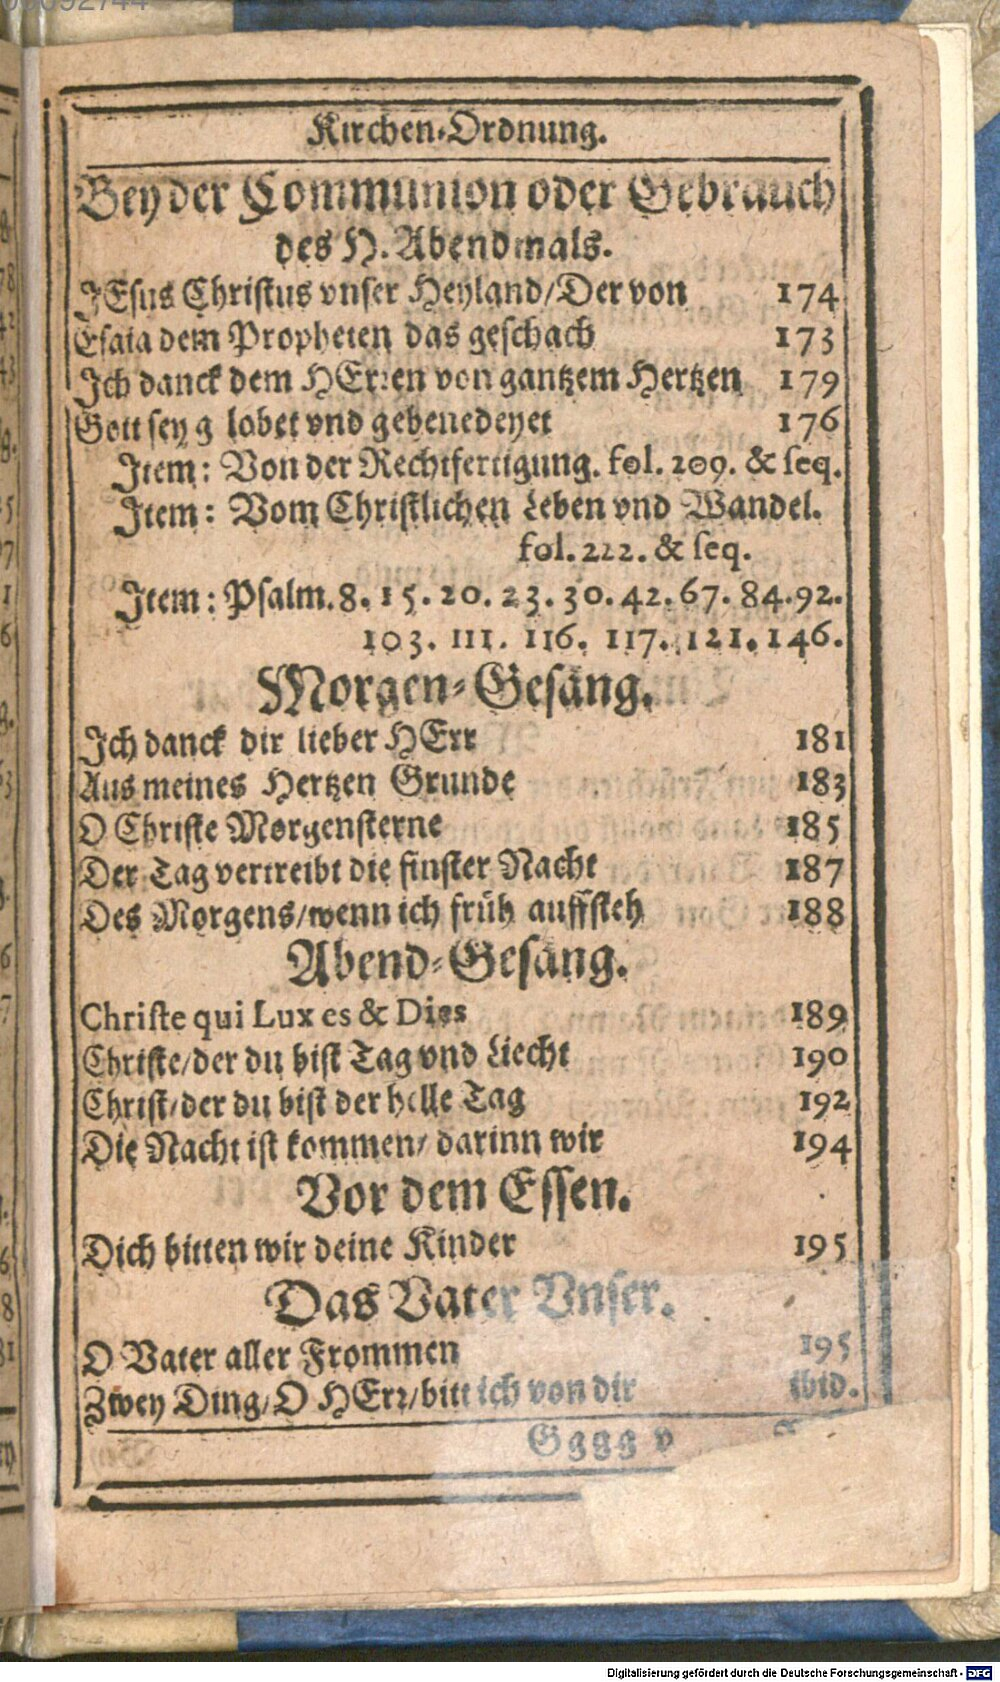 Kirchen-Ordnung.
Bey der Communion oder Gebrauch
des H. Abendmals.
JEsus Christus vnser Heyland/Der von 174
Esaia dem Propheten das geschach 173
Ich danck dem HErren von gantzem Hertzen 179
Gott sey g lobet vnd gebenedeyet 176
Item: Von der Rechtfertigung. fol. 209. & seq.
Item: Vom Christlichen Leben vnd Wandel.
fol. 222. & seq.
Item: Psalm. 8. 15. 20. 23. 30. 42. 67. 84. 92.
103. 111. 116. 117. 121. 146.
Morgen-Gesäng.
Ich danck dir lieber HErr 181
Aus meines Hertzen Grunde 183
O Christe Morgensterne 185
Der Tag vertreibt die finster Nacht 187
Des Morgens/wenn ich früh auffsteh 188
Abend-Gesäng.
Christe qui Lux es & Dies 189
Christe/der du bist Tag vnd Liecht 190
Christ/der du bist der helle Tag 192
Die Nacht ist kommen/ darinn wir 194
Vor dem Essen.
Dich bitten wir deine Kinder 195
Das Vater Vnser.
O Vater aller Frommen 195
Zwey Ding/O HErr/bitt ich von dir ibid.
Gggg v
Digitalisierung gefördert durch die Deutsche Forschungsgemeinschaft - DFG